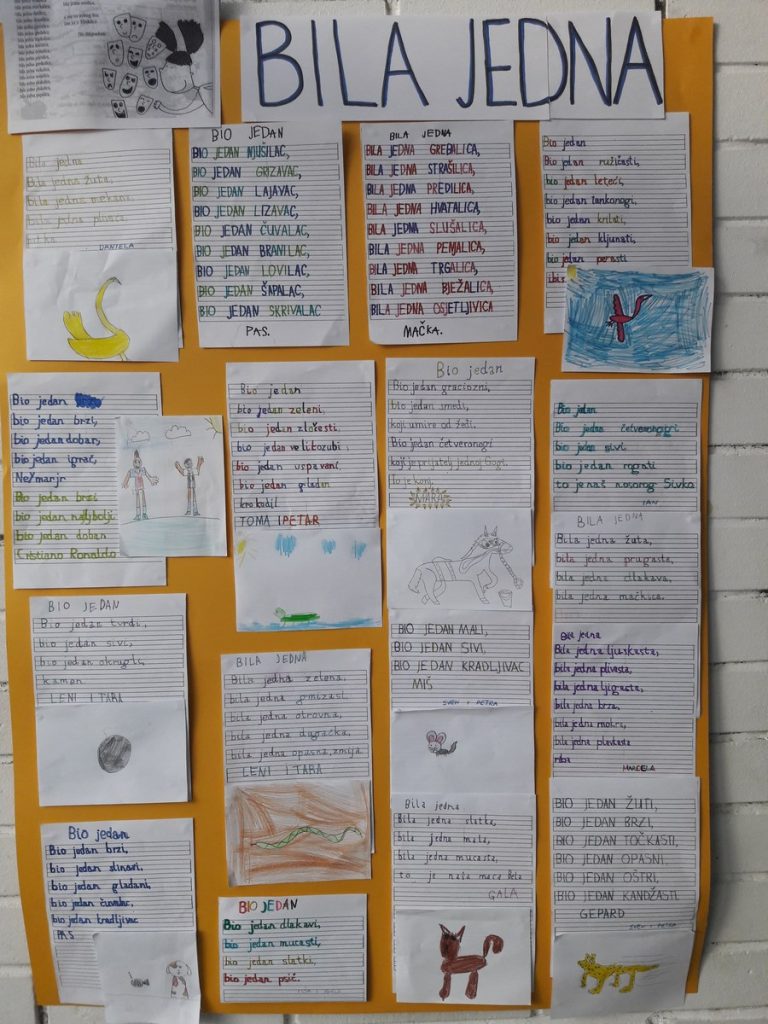 BILA JEDNA
Bila jedna
Bila jedna žuta,
bila jedna mekana
bila jedna pliva
DANIELA
BIO JEDAN
BIO JEDAN NJUŠILAC,
BIO JEDAN GRIZAVAC,
BIO JEDAN LAJAVAC,
BIO JEDAN LIZAVAC,
BIO JEDAN ČUVALAC,
BIO JEDAN BRANILAC,
BIO JEDAN LOVILAC,
BIO JEDAN ŠAPALAC,
BIO JEDAN SKRIVALAC
PAS.
BILA JEDNA
BILA JEDNA GREBALICA,
BILA JEDNA STRAŠILICA,
BILA JEDNA PREDILICA,
BILA JEDNA HVATALICA,
BILA JEDNA SLUŠALICA,
BILA JEDNA PEMALICA,
BILA JEDNA TRGALICA,
BILA JEDNA BJEŽALICA,
BILA JEDNA OSJETLJIVICA
MAČKA.
Bio jedan
Bio jedan ružičasti,
bio jedan leteći,
bio jedan tankonogi,
bio jedan krilati,
bio jedan kljunati,
bio jedan perasti
ibis
Bio jedan
Bio jedan brzi,
bio jedan dobar,
bio jedan igrač,
Neymarjr
Bio jedan brzi
bio jedan najbolji
bio jedan dobar
Cristiano Ronaldo
Bio jedan
bio jedan zeleni,
bio jedan zločesti,
bio jedan velikozubi,
bio jedan uspavani,
bio jedan gladan
krokodil
TOMA I PETAR
Bio jedan
Bio jedan graciozni,
bio jedan smeđi,
koji umire od žeđi,
Bio jedan četveronogi
koji je prijatelj jednoj Gogi.
To je konj
MARA
Bio jedan
Bio jedan četveronogi
bio jedan sivi
bio jedan rogati
to je naš nosorog Sivko
IAN
BILA JEDNA
Bila jedna žuta,
bila jedna prugasta,
bila jedna dlakava,
bila jedna mačkica.
BIO JEDAN
Bio jedan tvrdi,
bio jedan sivi,
bio jedan okrugli,
kamen
LENI I TARA
BILA JEDNA
Bila jedna zelena,
bila jedna gmizava,
bila jedna otrovna,
bila jedna dugačka,
bila jedna opasna, zmija.
LENI I TARA
BIO JEDAN MALI,
BIO JEDAN SIVI,
BIO JEDAN KRADLJIVAC
MIŠ
SVEN I PETRA
Bila jedna
Bila jedna ljuskasta,
bila jedna plivasta,
bila jedna ljigasta,
bila jedna brza,
bila jedna mokra,
bila jedna plavkasta
riba
MARCELA
Bio jedan
Bio jedan brzi,
bio jedan slinavi,
bio jedan gladani,
bio jedan čuvalac,
bio jedan kradljivac
PAS
BIO JEDAN
Bio jedan dlakavi,
bio jedan mucasti,
bio jedan slatki,
bio jedan psić.
Bila jedna
Bila jedna slatka,
bila jedna mala,
bila jedna mucasta,
to je naša maca Bela
GALA
BIO JEDAN ŽUTI,
BIO JEDAN BRZI,
BIO JEDAN TOČKASTI
BIO JEDAN OPASNI,
BIO JEDAN OŠTRI,
BIO JEDAN KANDŽASTI
GEPARD
SVEN I PETRA